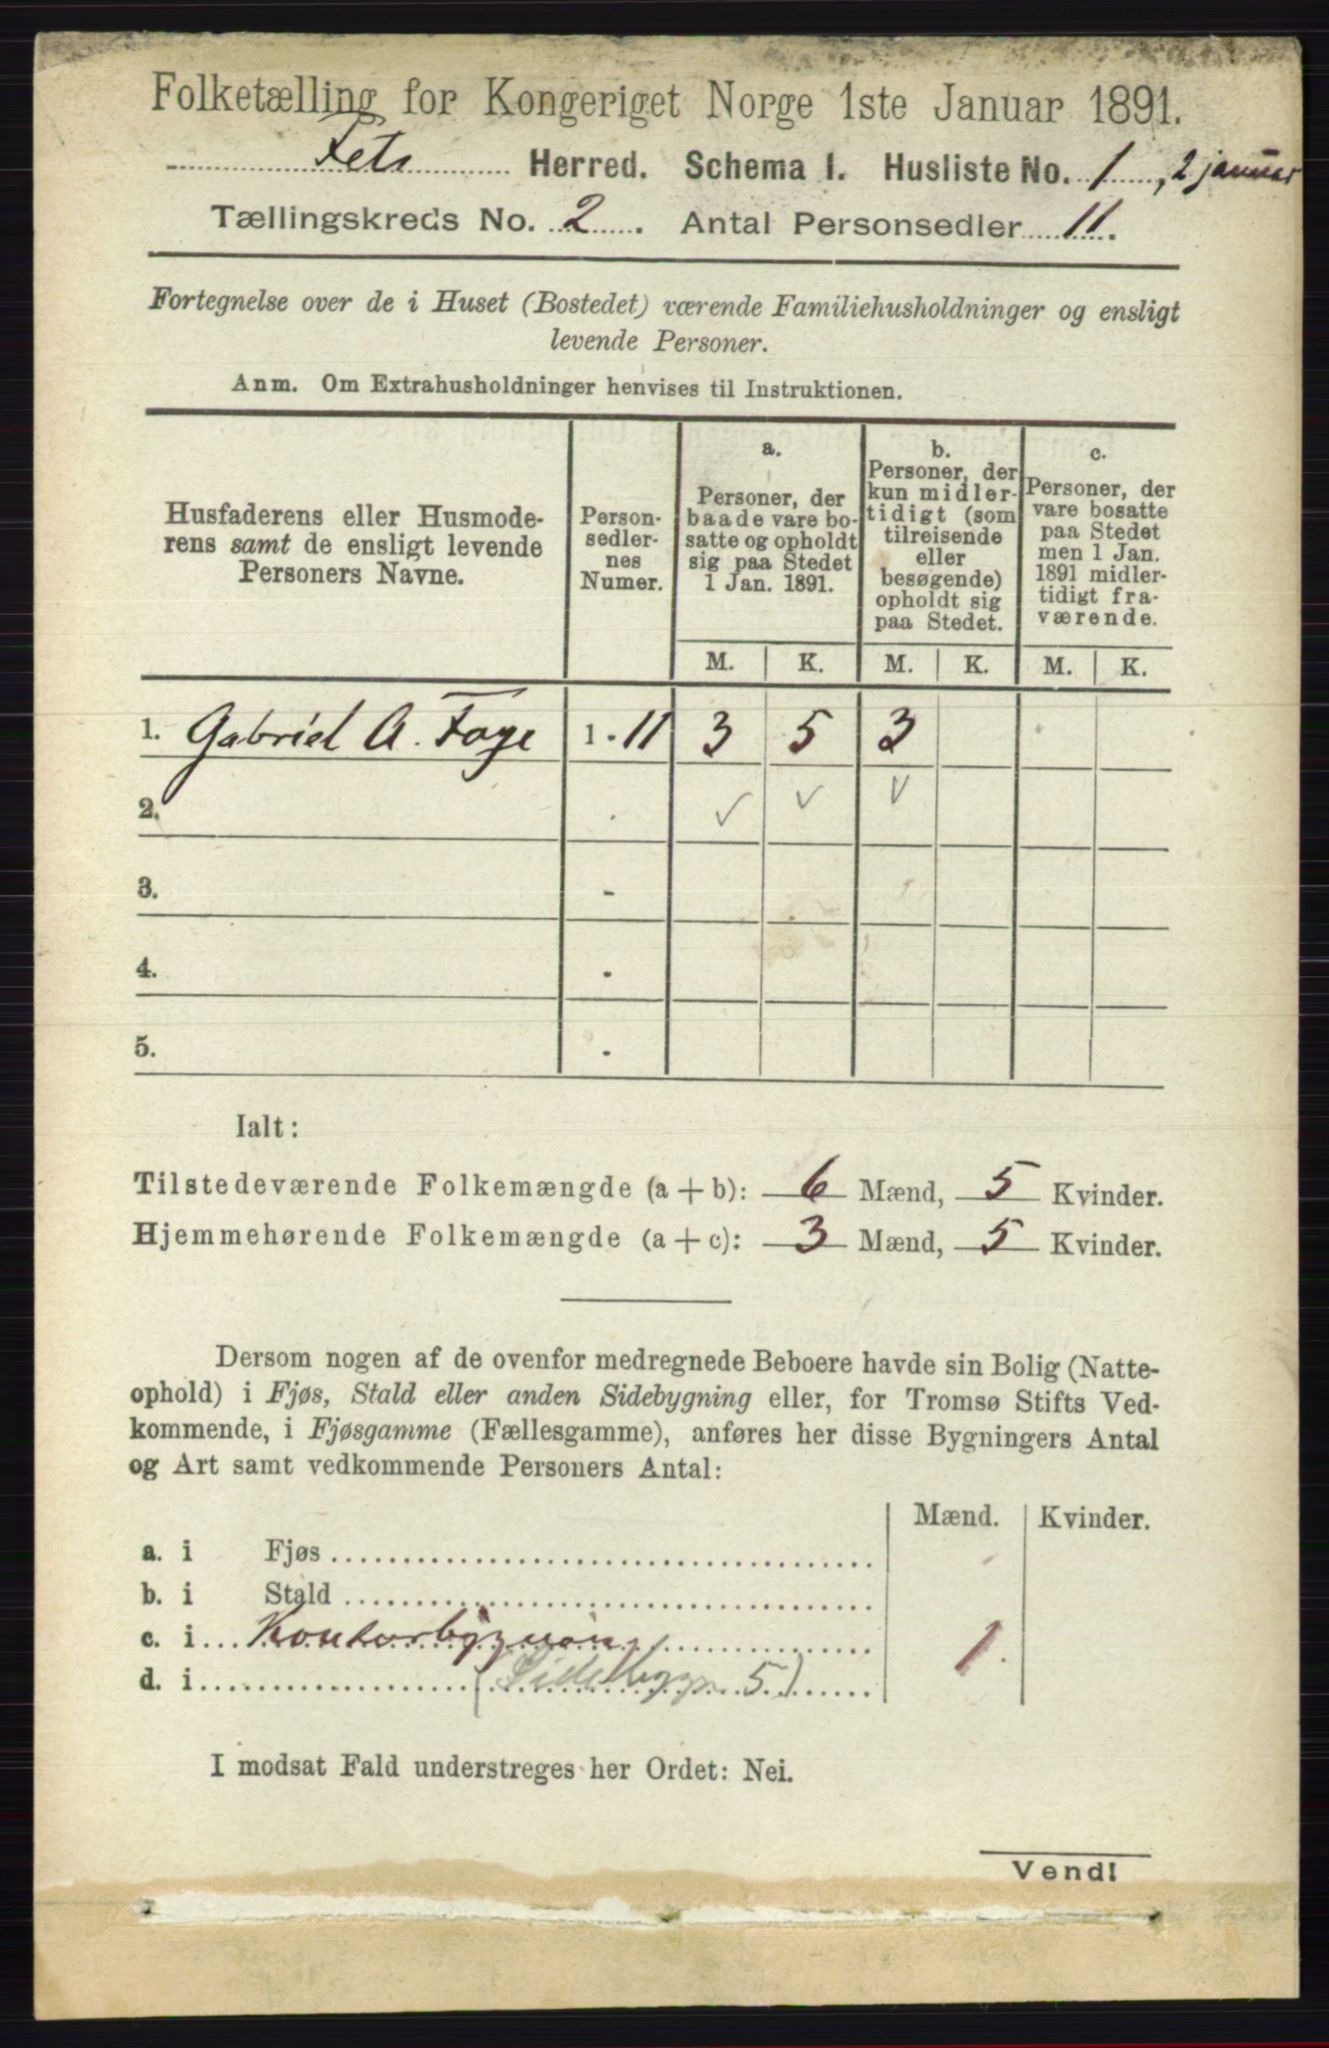 Folketælling for Kongeriget Norge 1ste Januar 1891.
Fets Herred. Schema I. Husliste No. 1, 2 januar
Tællingskreds No. 2. Antal Personsedler 11.
Fortegnelse over de i Huset (Bostedet) værende Familiehusholdninger og ensligt
levende Personer.
Anm. Om Extrahusholdninger henvises til Instruktionen.
Husfaderens eller Husmode-
rens samt de ensligt levende
Personers Navne.
Person-
sedler-
nes
Numer.
a.
Personer, der
baade vare bo-
satte og opholdt
sig paa Stedet
1 Jan. 1891.
b.
Personer, der
kun midler-
tidigt (som
tilreisende
eller
besøgende)
opholdt sig
paa Stedet.
c.
Personer, der
vare bosatte
paa Stedet
men 1 Jan.
1891 midler-
tidigt fra-
værende.
M. K. M. K. M. K.
1. Gabriel A. Faye 1 - 11 3 5 3
2. . ✓ ✓ ✓
3. -
4. .
5. .
Ialt:
Tilstedeværende Folkemængde (a + b): 6 Mænd, 5 Kvinder.
Hjemmehørende Folkemængde (a + c): 3 Mænd, 5 Kvinder.
Dersom nogen af de ovenfor medregnede Beboere havde sin Bolig (Natte-
ophold) i Fjøs, Stald eller anden Sidebygning eller, for Tromsø Stifts Ved-
kommende, i Fjøsgamme (Fællesgamme), anføres her disse Bygningers Antal
og Art samt vedkommende Personers Antal:
Mænd. Kvinder.
a. i Fjøs
b. i Stald
c. i Kontorbygning 1.
d. i (Sidebygn. 5)
I modsat Fald understreges her Ordet: Nei.
Vend!